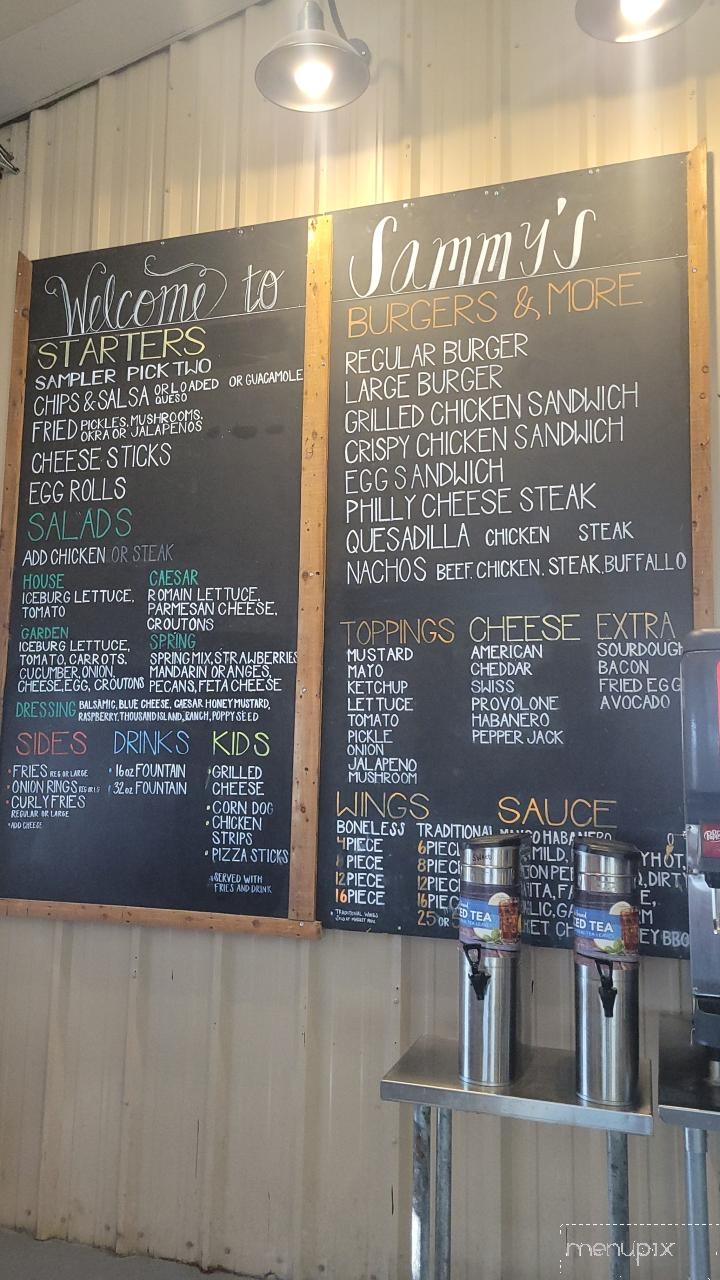 Welcome to
STARTERS
SAMPLER PICK TWO
CHIPS & SALSA OR LOADED OR GUACAMOLE
QUESO
FRIED PICKLES, MUSHROOMS,
OKRA OR JALAPENOS
CHEESE STICKS
EGG ROLLS
SALADS
ADD CHICKEN OR STEAK
HOUSE
ICEBURG LETTUCE,
TOMATO
CAESAR
ROMAIN LETTUCE,
PARMESAN CHEESE,
CROUTONS
GARDEN
ICEBURG LETTUCE,
TOMATO, CARROTS,
CUCUMBER, ONION,
CHEESE, EGG, CROUTONS
SPRING
SPRING MIX, STRAWBERRIES
MANDARIN ORANGES,
PECANS, FETA CHEESE
DRESSING BALSAMIC, BLUE CHEESE, CAESAR, HONEY MUSTARD,
RASPBERRY, THOUSAND ISLAND, RANCH, POPPY SEED
SIDES
FRIES REG OR LARGE
ONION RINGS REG OR LG
CURLY FRIES
REGULAR OR LARGE
ADD CHEESE
DRINKS
16 oz FOUNTAIN
32 oz FOUNTAIN
KIDS
GRILLED
CHEESE
CORN DOG
CHICKEN
STRIPS
PIZZA STICKS
SERVED WITH
FRIES AND DRINK
Sammy's
BURGERS & MORE
REGULAR BURGER
LARGE BURGER
GRILLED CHICKEN SANDWICH
CRISPY CHICKEN SANDWICH
EGG SANDWICH
PHILLY CHEESE STEAK
QUESADILLA CHICKEN STEAK
NACHOS BEEF, CHICKEN, STEAK, BUFFALLO
TOPPINGS
MUSTARD
MAYO
KETCHUP
LETTUCE
TOMATO
PICKLE
ONION
JALAPENO
MUSHROOM
CHEESE
AMERICAN
CHEDDAR
SWISS
PROVOLONE
HABANERO
PEPPER JACK
EXTRA
SOURDOUGH
BACON
FRIED EGG
AVOCADO
WINGS
BONELESS
4 PIECE
8 PIECE
12 PIECE
16 PIECE
TRADITIONAL
6 PIEC
8 PIEC
12 PIEC
16 PIE
25 OR
TRADITIONAL WINGS
SOLD AT MARKET PRICE
SAUCE
MANGO HABANERO
MILD,
HOT,
DIRTY
EY BBQ
ED TEA
ICED TEA
menupix